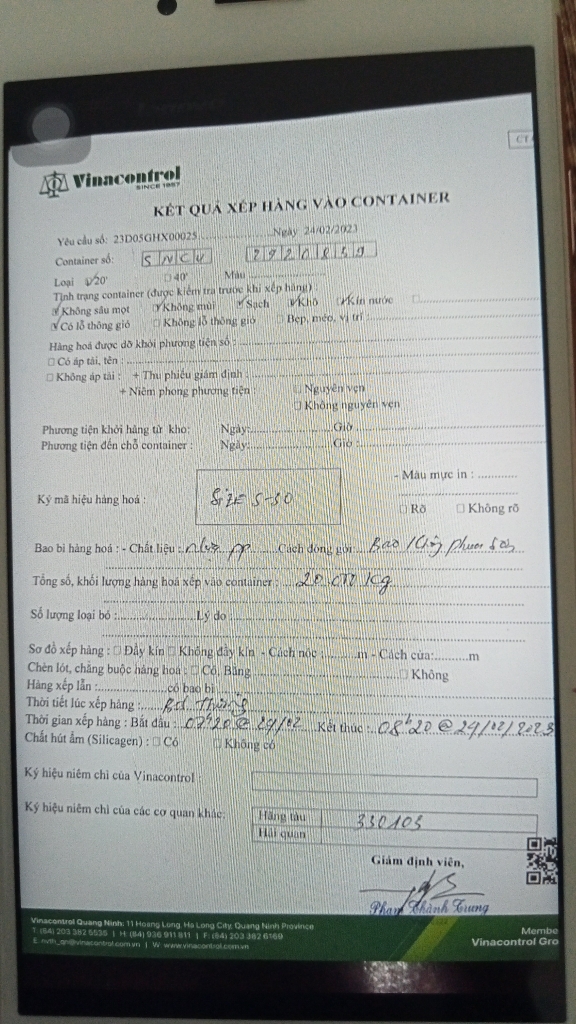 CT
Vinacontrol
SINCE 1957
KẾT QUẢ XẾP HÀNG VÀO CONTAINER
Yêu cầu số: 23D05GHX00025 Ngày 24/02/2023
Container số: SNCU 2920859
Loại 20' 40' Màu
Tình trạng container (được kiểm tra trước khi xếp hàng)
Không sâu mọt Không mùi Sạch Khô Kín nước
Có lỗ thông gió Không lỗ thông gió Bẹp, méo, vị trí :
Hàng hoá được dỡ khỏi phương tiện số :
Có áp tải, tên :
Không áp tải : + Thu phiếu giám định :
+ Niêm phong phương tiện : Nguyên vẹn
Không nguyên vẹn
Phương tiện khởi hàng từ kho: Ngày: Giờ
Phương tiện đến chỗ container : Ngày: Giờ :
- Màu mực in :
Ký mã hiệu hàng hoá : SIZE 5-50
Rõ Không rõ
Bao bì hàng hoá : - Chất liệu : nhựa pp Cách đóng gói Bao
Tổng số, khối lượng hàng hoá xếp vào container : 20 kg
Số lượng loại bỏ : Lý do :
Sơ đồ xếp hàng : Đầy kín Không đầy kín - Cách nóc : m - Cách cửa: m
Chèn lót, chằng buộc hàng hoá : Có, Bằng Không
Hàng xếp lẫn : có bao bì
Thời tiết lúc xếp hàng :
Thời gian xếp hàng : Bắt đầu : 07h20 @ 24/02 Kết thúc : 08h20 @ 24/02/2023
Chất hút ẩm (Silicagen) : Có Không có
Ký hiệu niêm chì của Vinacontrol :
Ký hiệu niêm chì của các cơ quan khác: Hãng tàu 330103
Hải quan
Giám định viên,
Phạm Thành Trung
Vinacontrol Quang Ninh: 11 Hoang Long, Ha Long City, Quang Ninh Province
T: (84) 203 382 5535 | H: (84) 936 911 811 | F: (84) 203 382 6169
E: nvth_qn@vinacontrol.com.vn | W: www.vinacontrol.com.vn
Membe
Vinacontrol Gro